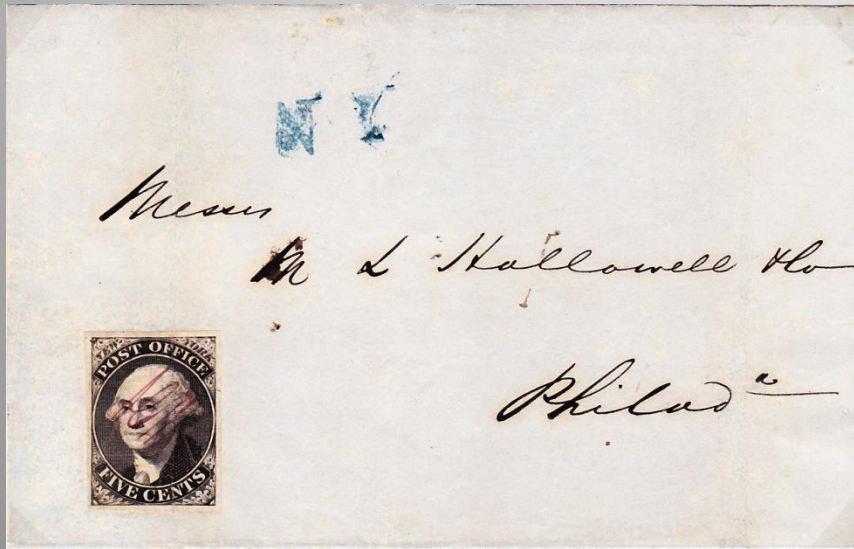 N Y
Messrs
M L Hallowell & Co
Philad a
NEW YORK
POST OFFICE
FIVE CENTS